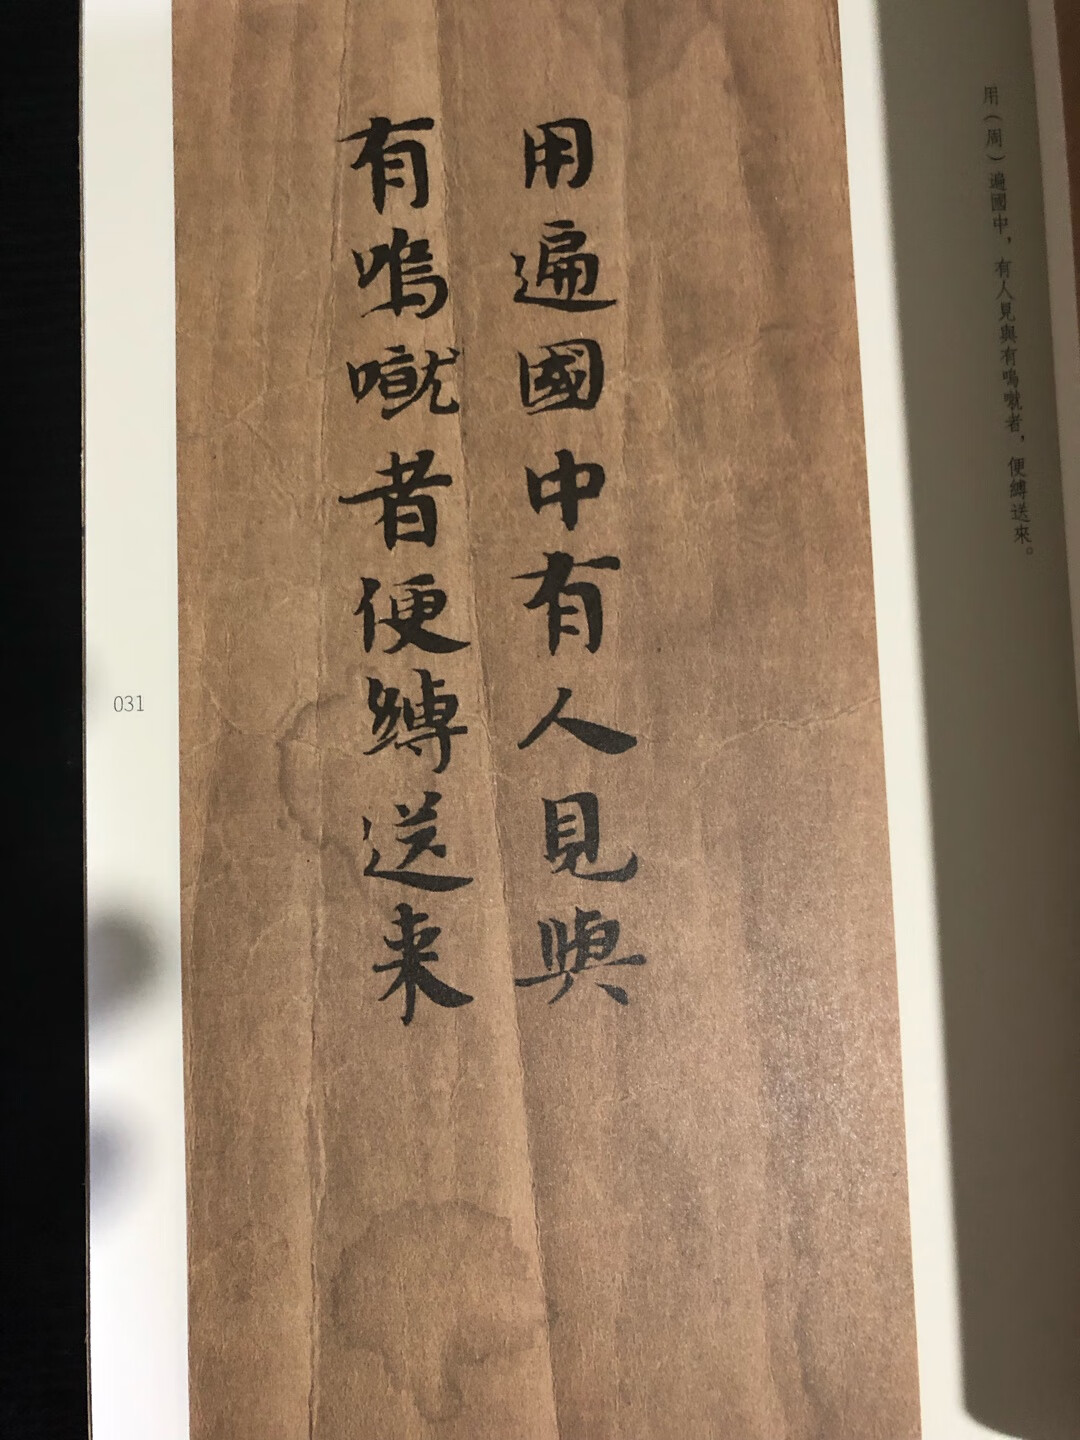 用遍國中有人見與
有嗚噈者便縛送来
用（周）遍國中，有人見與有嗚噈者，便縛送來。
031